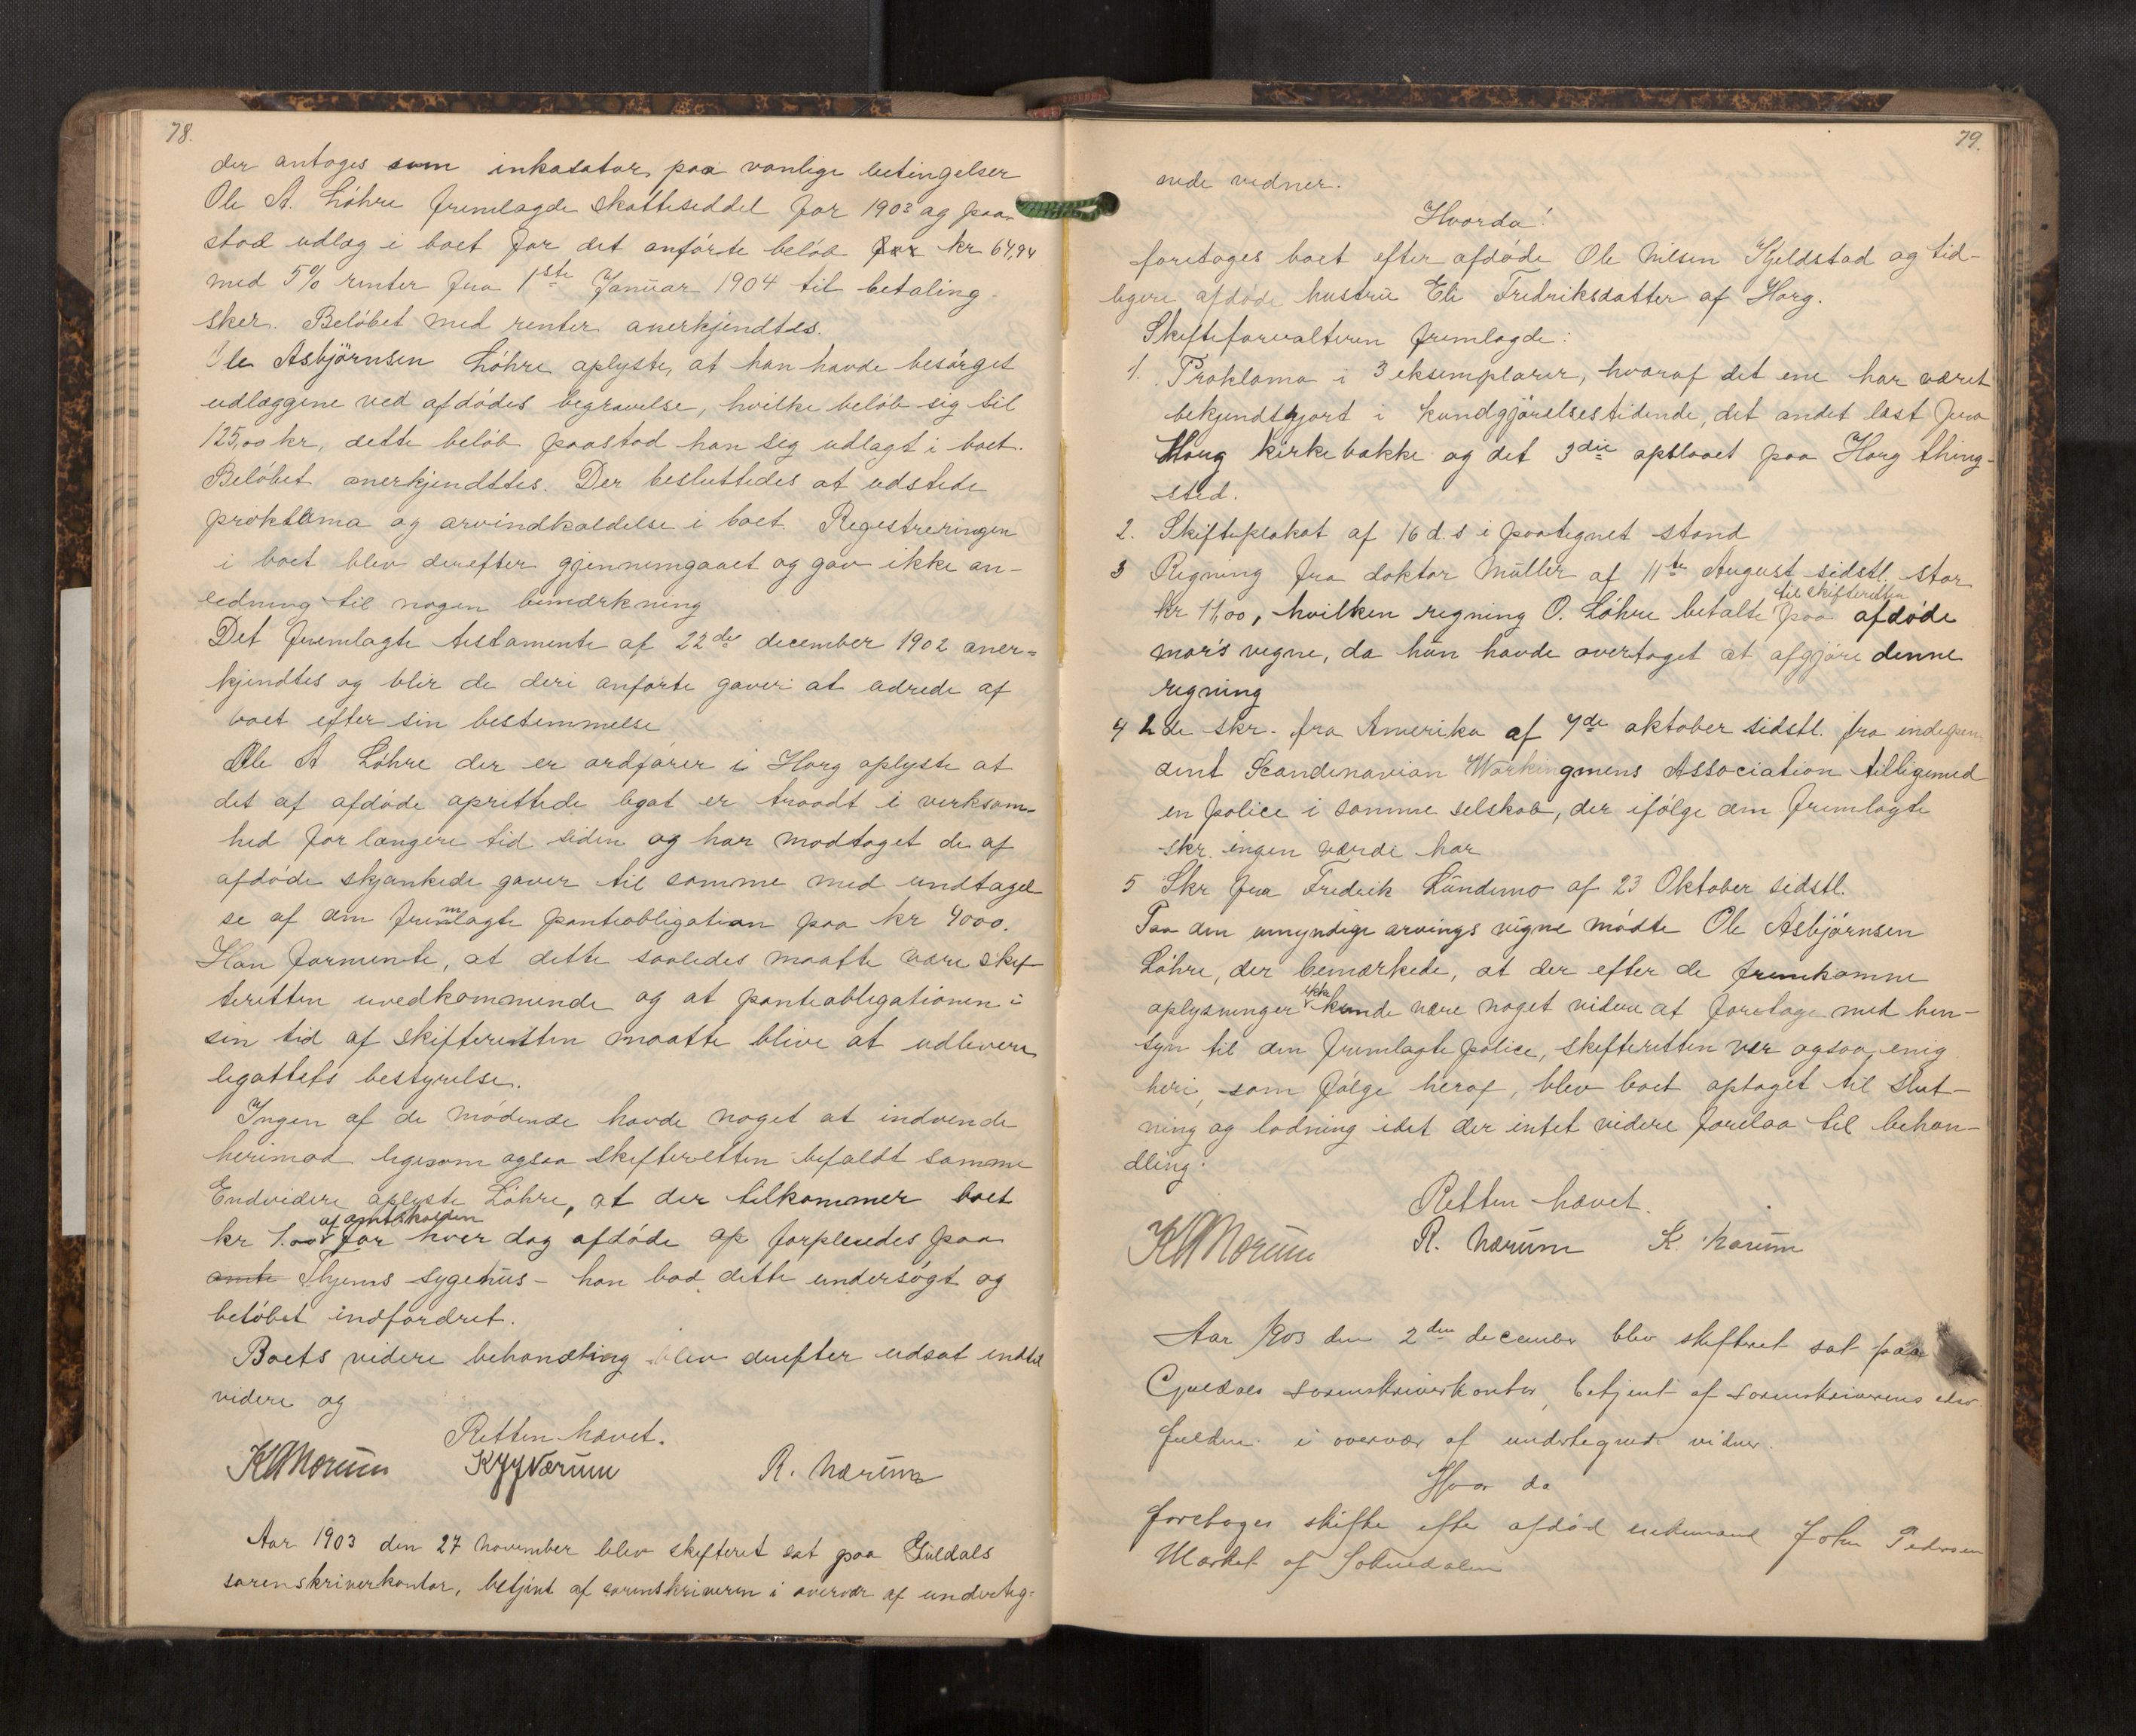 78.
der antages som inkasator paa vanlige betingelser
Ole A. Løhre fremlagde skatteseddel for 1903 og paa-
stod udlæg i boet for det anførte beløb for kr 64,94
med 5% renter fra 1ste Januar 1904 til betaling
sker. Beløbet med renter anerkjendtes.
Ole Asbjørnsen Løhre oplyste, at han havde besørget
udlæggene ved afdødes begravelse, hvilke beløb sig til
125,00 kr, dette beløb paastod han sig udlagt i boet.
Beløbet anerkjendttes. Der besluttedes at udstede
proklama og arvindkaldelse i boet. Regestreringen
i boet blev derefter gjennemgaaet og gav ikke an-
ledning til nogen bemærkning
Det fremlagte testamente af 22de december 1902 aner-
kjendtes og blir de deri anførte gaver at udrede af
boet efter sin bestemmelse
Ole A Løhre der er ordfører i Horg oplyste at
det af afdøde oprettede legat er traadt i verksom-
hed for længere tid siden og har modtaget de af
afdøde skjænkede gaver til samme med undtagel
se af den fremlagte panteobligation paa kr 4000.
Han formente, at dette saaledes maatte være skif-
teretten uvedkommende og at panteobligationen i
sin tid af skifteretten maatte blive at udlevere
legattets bestyrelse.
Ingen af de mødende havde noget at indvende
herimod ligesom ogsaa skifteretten bifaldt samme
Endvidere oplyste Løhre, at der tilkommer boet
af amtskassen
kr 1.00 for hver dag afdøde op forpleiedes paa
amte Thjems sygehus - han bad dette undersøgt og
beløbet indfordret.
Boets videre behandling blev derefter udsat indtil
videre og
Retten hævet.
KANærum KJJNærum R. Nærum
Aar 1903 den 27 November blev skifteret sat paa Guldals
sorenskriverkontor, betjent af sorenskriveren i overvær af underteg-
79.
nede vidner.
Hvorda!
foretoges boet efter afdøde Ole Nilsen Kjeldstad og tid-
ligere afdøde hustru Eli Fredriksdatter af Horg.
Skifteforvalteren fremlagde:
1. Proklama i 3 eksemplarer, hvoraf det ene har været
bekjendtgjort i kundgjørelsestidende, det andet læst fra
Horg kirkebakke og det 3die opslaaet paa Horg thing-
sted.
2. Skifteplakat af 16 d.s i paategnet stand
3 Regning fra doktor Müller af 11te August sidstl. stor
til skifteretten
kr 11,00, hvilken regning O. Løhre betalte paa afdøde
mor's vegne, da hun havde overtaget at afgjøre denne
regning
4 2de skr. fra Amerika af 7de oktober sidstl. fra indepen
dent Scandinavian Workingmens Association tilligemed
en police i samme selskab, der ifølge den fremlagte
skr. ingen værdi har
5 Skr fra Fredrik Lundemo af 23 Oktober sidstl.
Paa den umyndige arvings vegne mødte Ole Asbjørnsen
Løhre, der bemærkede, at der efter de fremkomne
ikke
oplysninger kunde være noget videre at foretage med hen-
syn til den fremlagte police, skifteretten var ogsaa enig
heri, som følge heraf, blev boet optaget til slut-
ning og lodning idet der intet videre forelaa til behan-
dling.
Retten hævet.
KANærum R. Nærum K. Nærum
Aar 1903 den 2den december blev skifteret sat paa
Guldals sorenskriverkontor, betjent af sorenskriverens edsv
fuldm. i overvær af undertegnede vidner.
Hvor da
foretoges skifte efter afdød enkemand John Pedersen
af Soknedalen